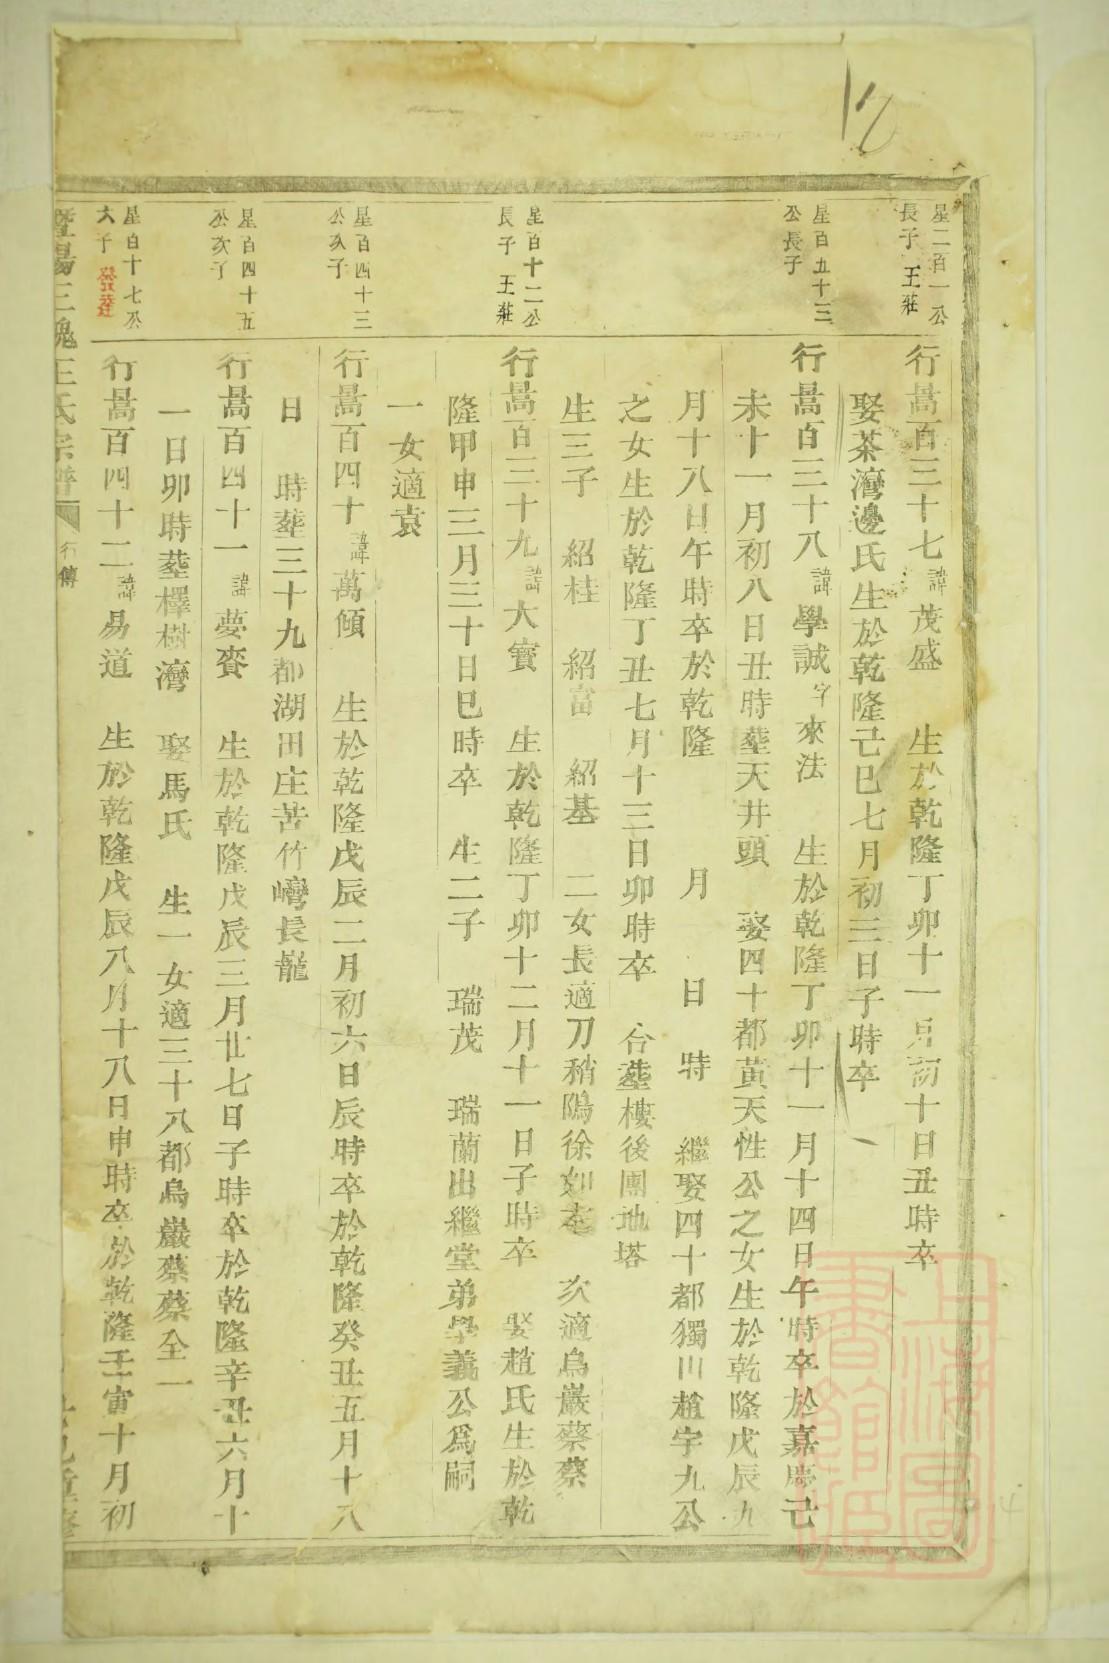 星二百一公
長子 王莊
行暠百三十七諱茂盛 生於乾隆丁卯十一月初十日丑時卒
娶茶灣邊氏生於乾隆己巳七月初三日子時卒
星百五十三
公長子
行暠百三十八諱學誠字來法 生於乾隆丁卯十一月十四日午時卒於嘉慶己
未十一月初八日丑時塟天井頭 娶四十都黃天性公之女生於乾隆戊辰九
月十八日午時卒於乾隆 月 日 時 繼娶四十都獨川趙宇九公
之女生於乾隆丁丑七月十三日卯時卒 合塟樓後團地塔
生三子 紹桂 紹富 紹基 二女長適刀稍隝徐 次適烏巖蔡蔡
星百十二公
長子 王莊
行暠百三十九諱大寶 生於乾隆丁卯十二月十一日子時卒 娶趙氏生於乾
隆甲申三月三十日巳時卒 生二子 瑞茂 瑞蘭出繼堂弟學義公爲嗣
一女適袁
星百四十三
公次子
行暠百四十諱萬傾 生於乾隆戊辰二月初六日辰時卒於乾隆癸丑五月十八
日 時塟三十九都湖田庄苦竹灣長巃
星百四十五
公次子
行暠百四十一諱夢賚 生於乾隆戊辰三月廿七日子時卒於乾隆辛丑六月十
一日卯時塟檡樹灣 娶馬氏 生一女適三十八都烏巖蔡蔡全一
星百十七公
六子 發達
行暠百四十二諱易道 生於乾隆戊辰八月十八日申時卒於乾隆壬寅十月初
暨陽三槐王氏宗譜 行傳
上海圖書館藏